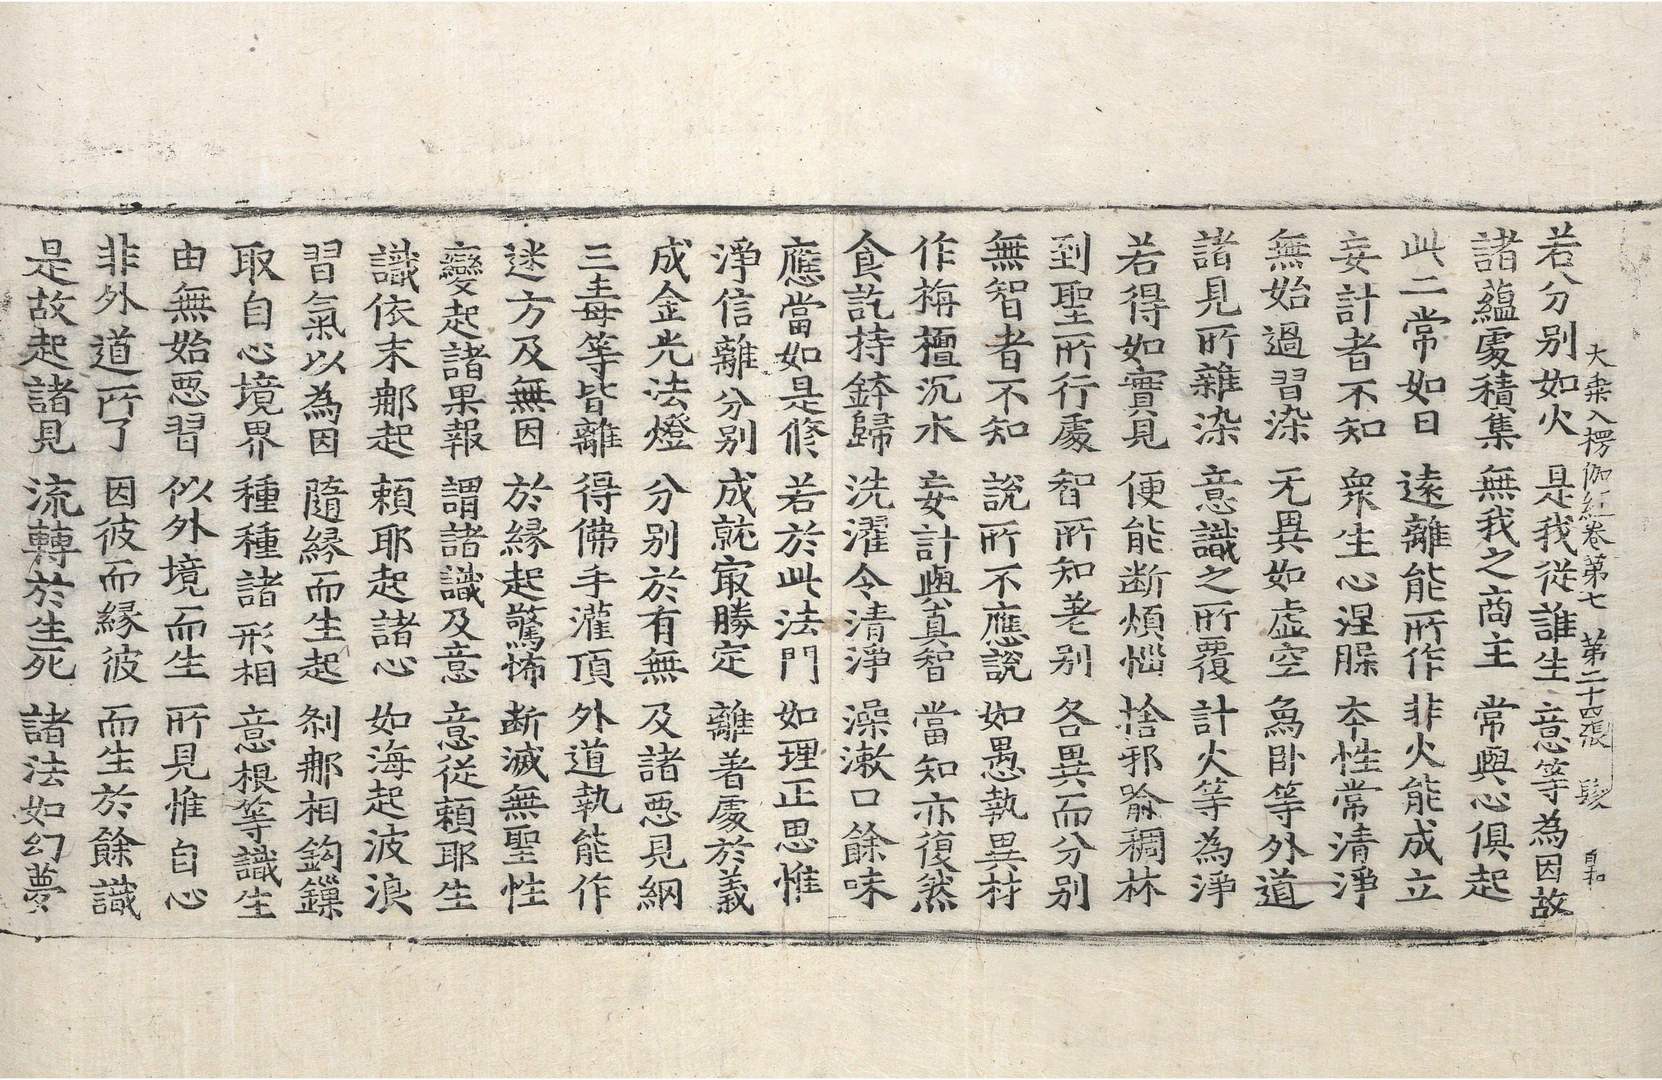 大乘入楞伽経卷第七 第二十四張 髮
若分别如火 是我從誰生 意等為因故
諸蘊處積集 無我之商主 常與心俱起
此二常如日 遠離能所作 非火能成立
妄計者不知 衆生心涅脲 本性常清淨
無始過習染 无異如虛空 為卧等外道
諸見所雜染 意識之所覆 計火等為淨
若得如實見 便能断煩惱 捨邪喻稠林
到聖所行處 智所知差别 各異而分别
無智者不知 說所不應說 如愚執異材
作栴檀沉水 妄計與真智 當知亦復然
食訖持鉢歸 洗濯令清淨 澡漱口餘味
應當如是修 若於此法門 如理正思惟
淨信離分别 成就㝡勝定 離著處於義
成金光法燈 分别於有無 及諸惡見網
三毒等皆離 得佛手灌頂 外道執能作
迷方及無因 於縁起驚怖 断滅無聖性
變起諸果報 謂諸識及意 意從賴耶生
識依末那起 賴耶起諸心 如海起波浪
習氣以為因 隨縁而生起 刹那相鉤鏁
取自心境界 種種諸形相 意根等識生
由無始惡習 似外境而生 所見惟自心
非外道所了 因彼而縁彼 而生於餘識
是故起諸見 流轉於生死 諸法如幻夢